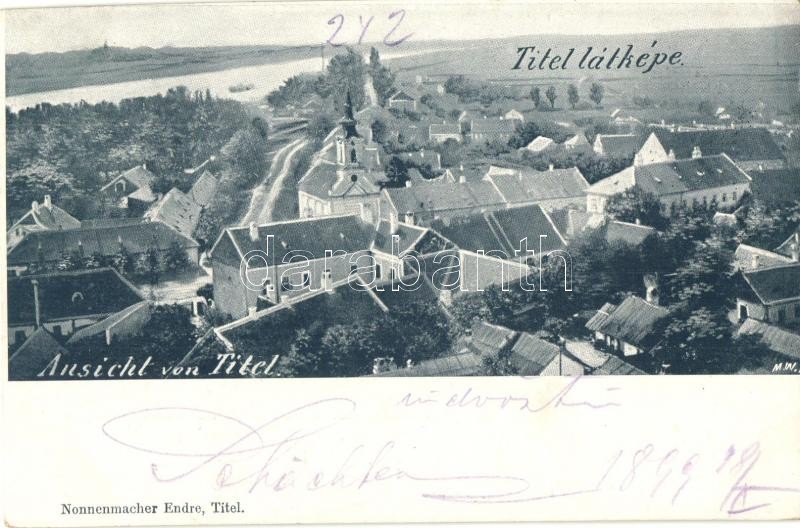 242
Titel látképe.
Darabanth
Ansicht von Titel.
M.W.
üdvözlü
1899
Nonnenmacher Endre, Titel.